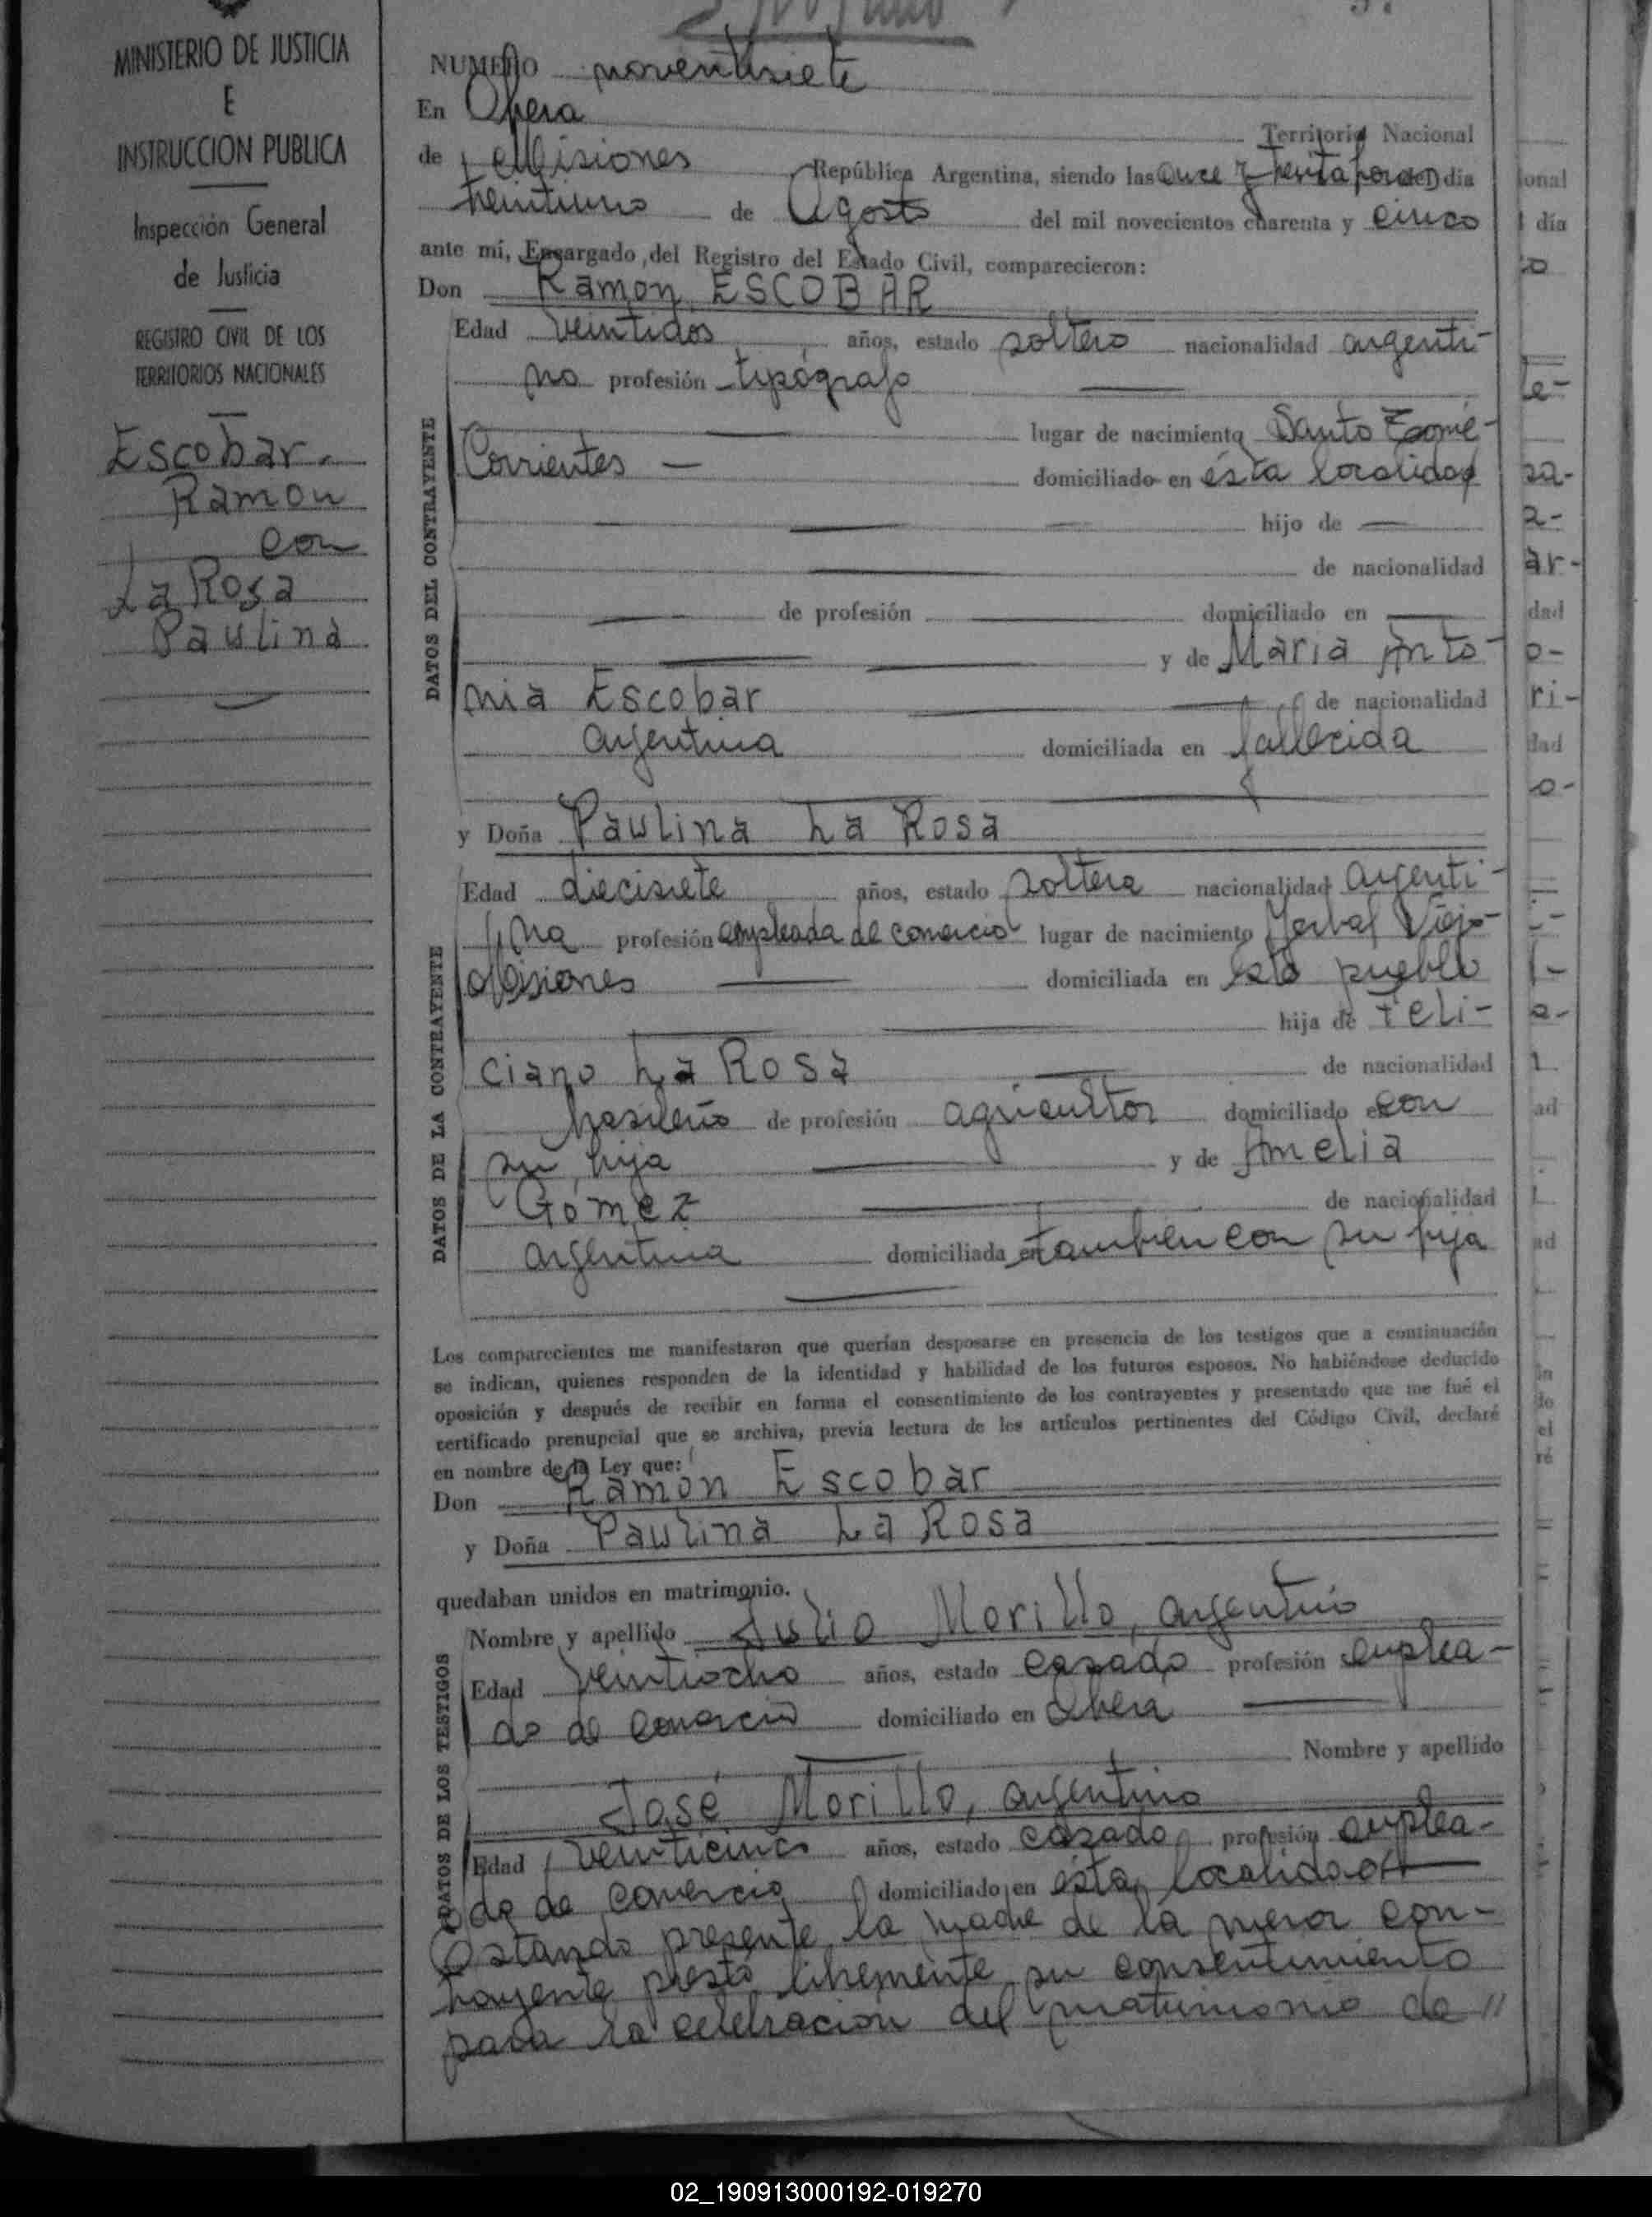 MINISTERIO DE JUSTICIA
E
INSTRUCCION PUBLICA
Inspección General
de Justicia
REGISTRO CIVIL DE LOS
TERRITORIOS NACIONALES
Escobar.
Ramon
con
La Rosa
Paulina
NUMERO noventisiete
En Obera Territorio Nacional
de Misiones República Argentina, siendo las once y treinta horas del día
treintiuno de Agosto del mil novecientos cuarenta y cinco
ante mí, Encargado del Registro del Estado Civil, comparecieron:
Don Ramon ESCOBAR
DATOS DEL CONTRAYENTE
Edad veintidos años, estado soltero nacionalidad argenti-
no profesión tipógrafo
lugar de nacimiento Santo Tomé-
Corrientes — domiciliado en ésta localidad
hijo de —
de nacionalidad
de profesión domiciliado en
y de Maria Anto-
nia Escobar de nacionalidad
argentina domiciliada en fallecida
y Doña Paulina La Rosa
DATOS DE LA CONTRAYENTE
Edad diecisiete años, estado soltera nacionalidad argenti-
na profesión empleada de comercio lugar de nacimiento Yerbal Viejo-
Misiones domiciliada en este pueblo
hija de Feli-
ciano La Rosa de nacionalidad
brasileño de profesión agricultor domiciliado en con
su hija y de Amelia
Gómez de nacionalidad
argentina domiciliada en tambien con su hija
Los comparecientes me manifestaron que querían desposarse en presencia de los testigos que a continuación
se indican, quienes responden de la identidad y habilidad de los futuros esposos. No habiéndose deducido
oposición y después de recibir en forma el consentimiento de los contrayentes y presentado que me fué el
certificado prenupcial que se archiva, previa lectura de los artículos pertinentes del Código Civil, declaré
en nombre de la Ley que:
Don Ramon Escobar
y Doña Paulina La Rosa
quedaban unidos en matrimonio.
DATOS DE LOS TESTIGOS
Nombre y apellido Julio Morillo, argentino
Edad veintiocho años, estado casado profesión emplea-
do de comercio domiciliado en Obera
Nombre y apellido
José Morillo, argentino
Edad veinticinco años, estado casado profesión emplea-
do de comercio domiciliado en ésta localidad
Estando presente la madre de la menor con-
trayente prestó libremente su consentimiento
para la celebracion del matrimonio de //
02_190913000192-019270